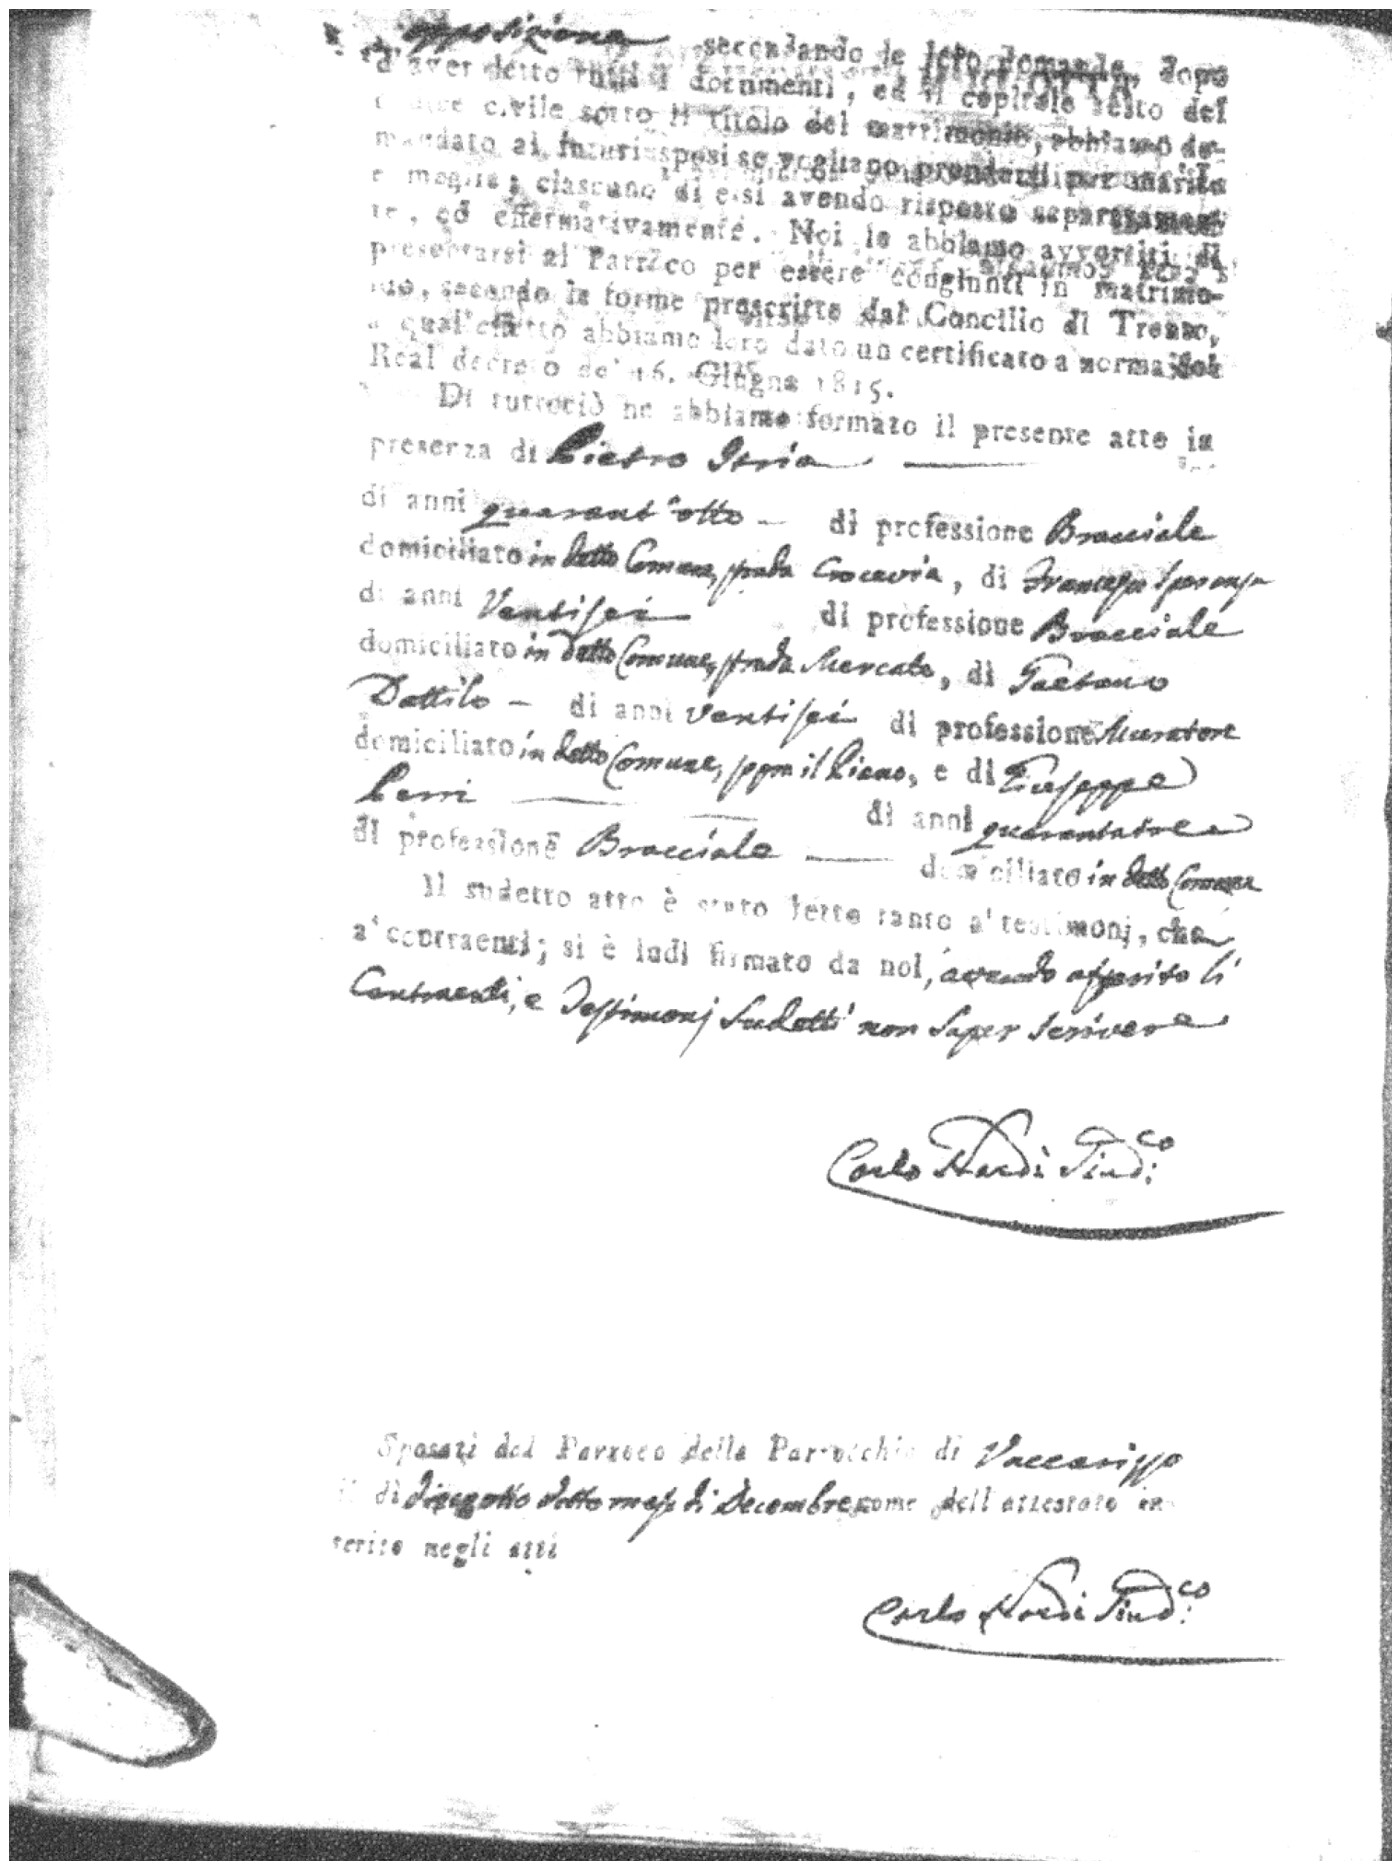 opposizione secondando le loro domande, dopo
d'aver letto tutti i documenti, ed il capitolo sesto del
codice civile sotto il titolo del matrimonio, abbiamo do-
mandato ai futuri sposi se vogliano prendersi per marito
e moglie; ciascuno di essi avendo risposto separatamen-
te, ed affermativamente. Noi le abbiamo avvertiti di
presentarsi al Parroco per essere congiunti in matrimo-
nio, secondo le forme prescritte dal Concilio di Trento,
a qual'effetto abbiamo loro dato un certificato a norma del
Real decreto de' 16. Giugno 1815.
Di tuttociò ne abbiamo formato il presente atto in
presenza di Pietro Itria
di anni quarant'otto - di professione Bracciale
domiciliato in detto Comune, strada Crocevia, di Francesco Sparanza
di anni Ventisei di professione Bracciale
domiciliato in detto Comune, strada Mercato, di Gaetano
Dattilo - di anni ventisei di professione Muratore
domiciliato in detto Comune, sopra il Piano, e di Giuseppe
Perri di anni quarantatre
di professione Bracciale domiciliato in detto Comune
Il sudetto atto è stato letto tanto a' testimonj, che
a' contraenti; si è indi firmato da noi, avendo asserito li
Contraenti, e Testimonj sudetti non saper scrivere
Carlo Sind.co
Sposati dal Parroco della Parrocchia di Vaccarizzo
li dì diecotto detto mese di Decembre come dell'attestato in-
serito negli atti
Carlo Sind.co